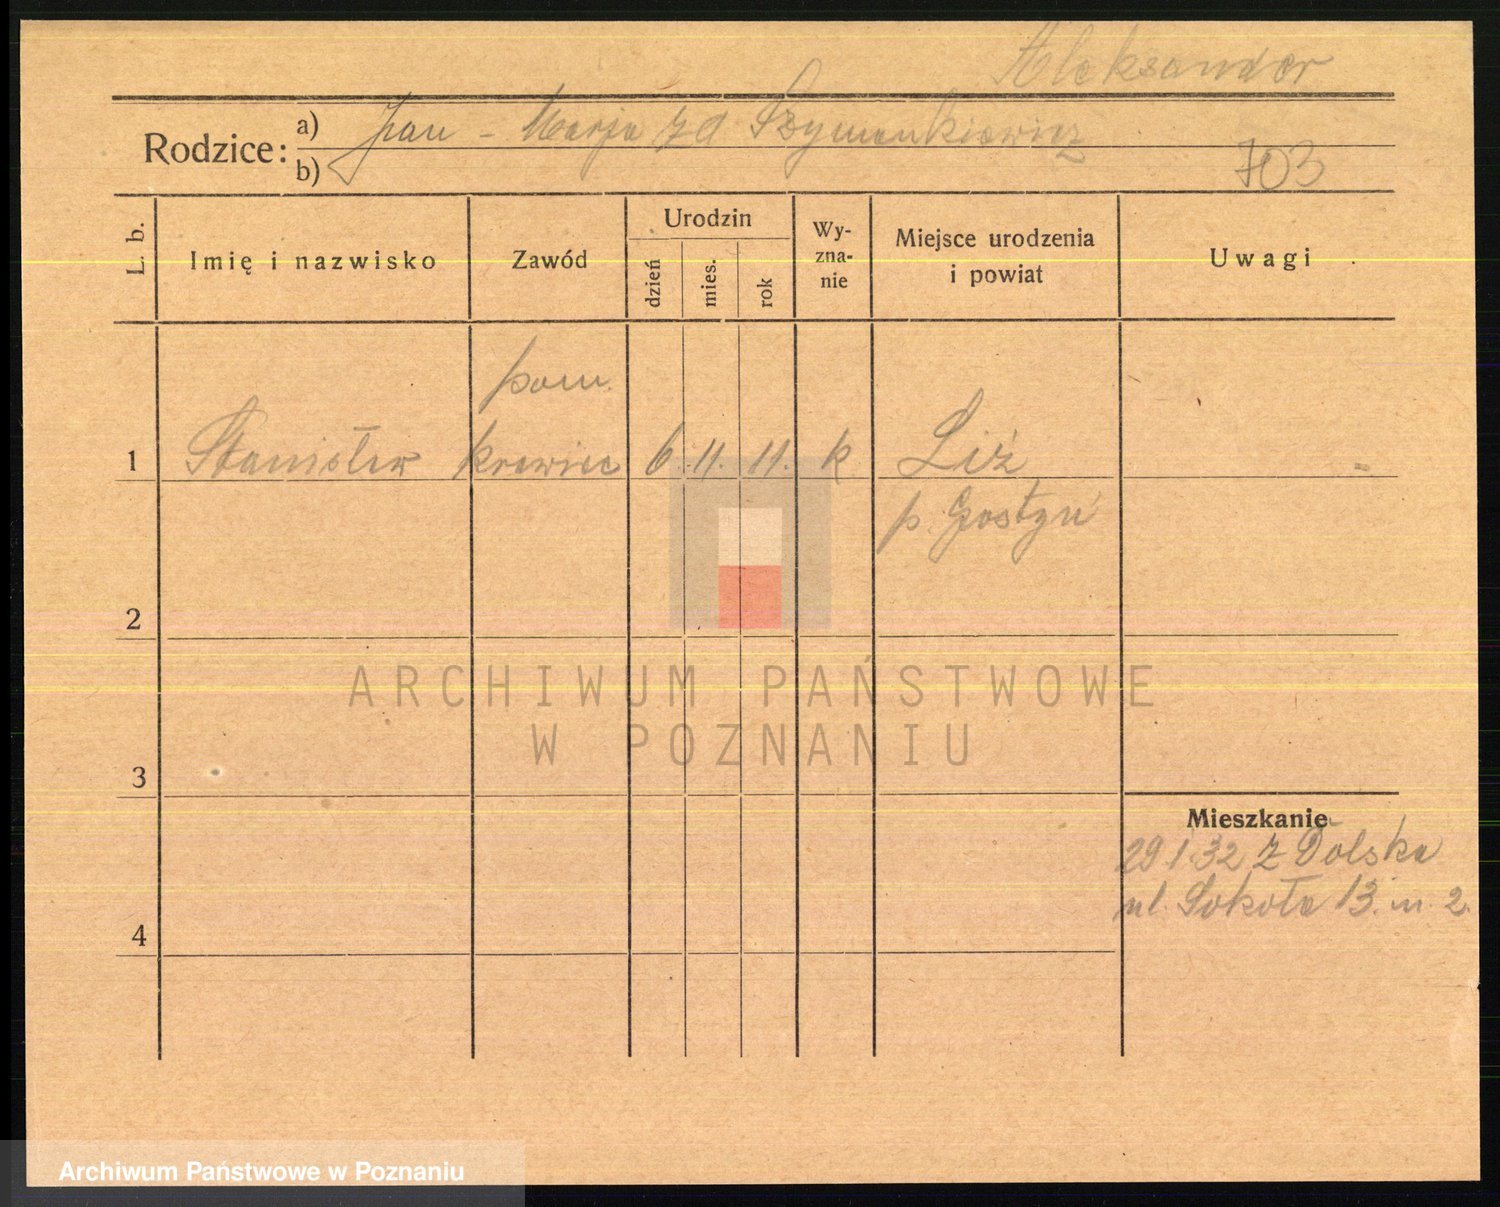 Aleksander
Rodzice: a) Jan - Marja zd Szymankiewicz
b)
703
L. b. Imię i nazwisko Zawód Urodzin dzień mies. rok Wy-zna-nie Miejsce urodzenia i powiat Uwagi
pom.
1 Stanisław krawiec 6. 11. 11. k Liż -
p. Gostyń
2
ARCHIWUM PAŃSTWOWE
W POZNANIU
3
Mieszkanie
29 1 32 z Dolska
ul. Sokoła 13. m. 2.
4
Archiwum Państwowe w Poznaniu